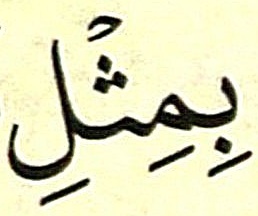 بِمِثْلِ